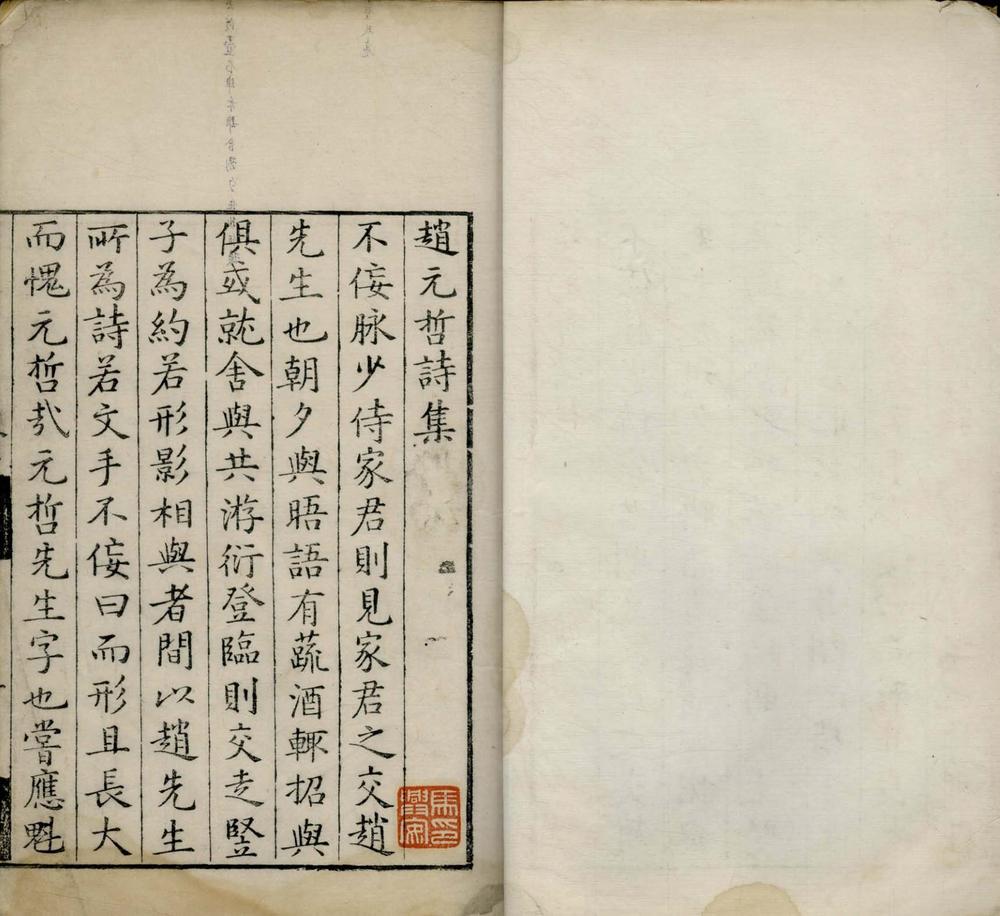 趙元哲詩集
不佞脉少侍家君則見家君之交趙
先生也朝夕與晤語有蔬酒輙招與
俱或就舍與共游衍登臨則交走豎
子為約若形影相與者間以趙先生
所為詩若文手不佞曰而形且長大
而愧元哲㢤元哲先生字也嘗應魁